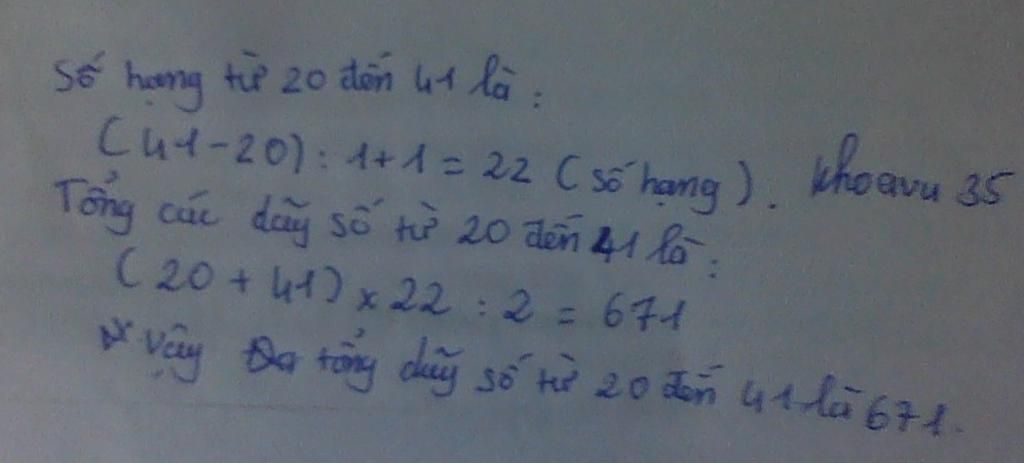 Số hạng từ 20 đến 41 là :
(41-20) : 1+1 = 22 (số hạng). khoavu 35
Tổng các dãy số từ 20 đến 41 là :
(20 + 41) x 22 : 2 = 671
Vậy tổng dãy số từ 20 đến 41 là 671.